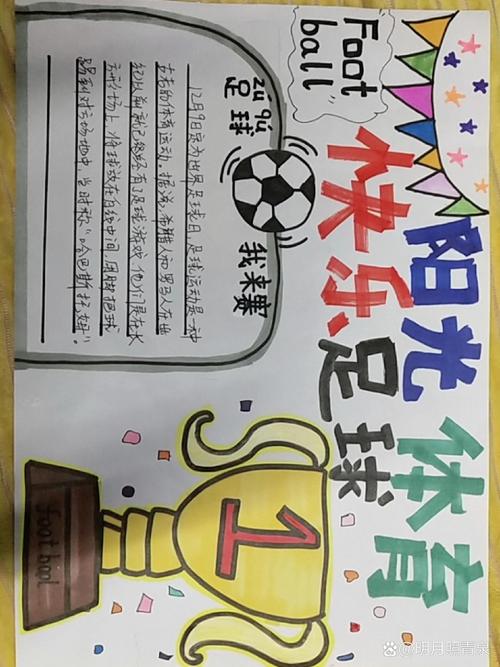 阳光体育
快乐足球
Foot
ball
足球
我来赛
12月9日定为世界足球日,足球运动是一种
古老的体育运动,据说,希腊人和罗马人在
纪以前就已经有了足球游戏 他们是在长
方形场上,将球放在白线中间,用脚把球
踢到对方场地中,当时称“哈巴斯托姆”。
1
football
@明月照青泉